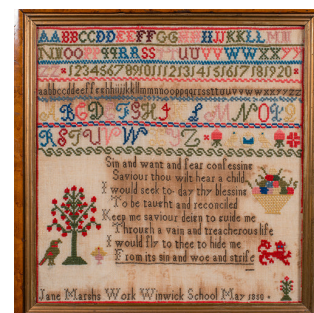 AABBCCDDEEFFGG HHIJKKLLMM
NNOOPPQQRRSSTTUUVVWWXXYY
ZZ 1234567891011121314151617181920
aabbccddeeffgghhiijjkkllmmnnooppqqrrssttuuvvwwxxyyzz
ABCDEFGHIJLMNOPQ
RSTUVWYZ
Sin and want and fear confessing
Saviour thou wilt hear a child
I would seek to day thy blessing
To be taught and reconcild
Keep me saviour deirn to guide me
Through a vain and treacherous life
I would fly to thee to hide me
From its sin and woe and strife
Jane Marshs Work Winwick School May 1880